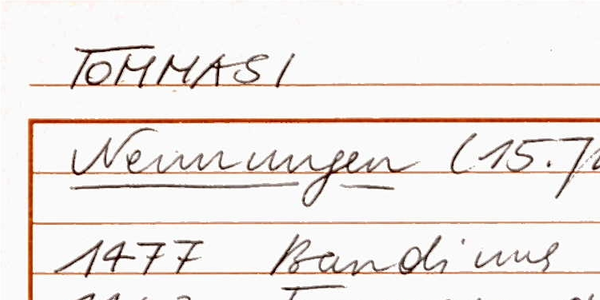 TOMMASI
Nennungen (15./
1477 Bandinus